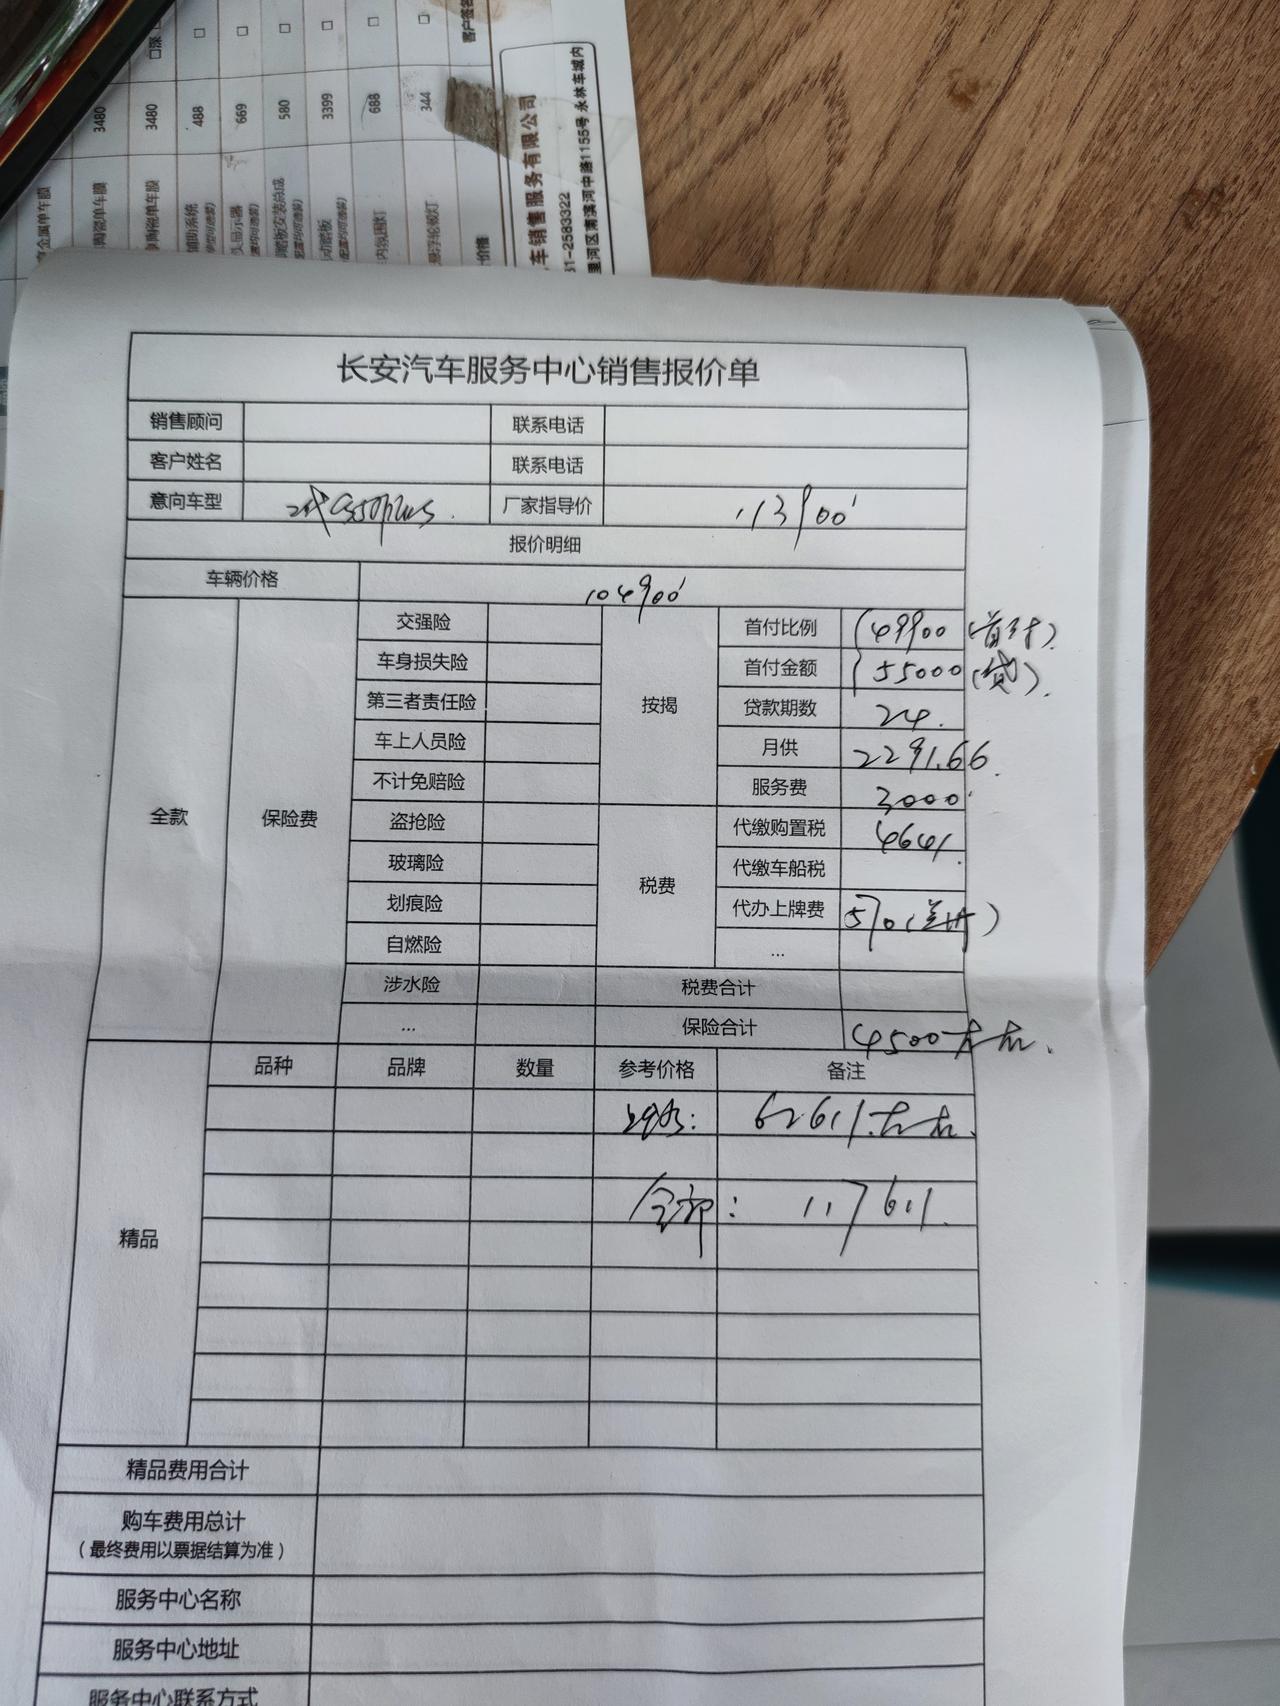 3480
3480
488
669
580
3399
688
344
客户签名
金属单车膜
陶瓷单车膜
陶瓷单车膜
辅助系统
头显示器
踏板安装总成
动踏板
内氛围灯
悬浮轮毂灯
价格
车销售服务有限公司
51-2583322
里河区南滨河中路1155号 永林车城内
长安汽车服务中心销售报价单
销售顾问 联系电话
客户姓名 联系电话
意向车型 二代CS50plus 厂家指导价 113900
报价明细
车辆价格 104900
全款 保险费 交强险 按揭 首付比例 49900(首付)
车身损失险 首付金额 55000(贷)
第三者责任险 贷款期数 24
车上人员险 月供 2291.66
不计免赔险 服务费 3000
盗抢险 税费 代缴购置税 4641
玻璃险 代缴车船税
划痕险 代办上牌费 570(兰州)
自燃险 …
涉水险 税费合计
… 保险合计 4500左右
精品 品种 品牌 数量 参考价格 备注
62611左右
全部: 117611
精品费用合计
购车费用总计
(最终费用以票据结算为准)
服务中心名称
服务中心地址
服务中心联系方式